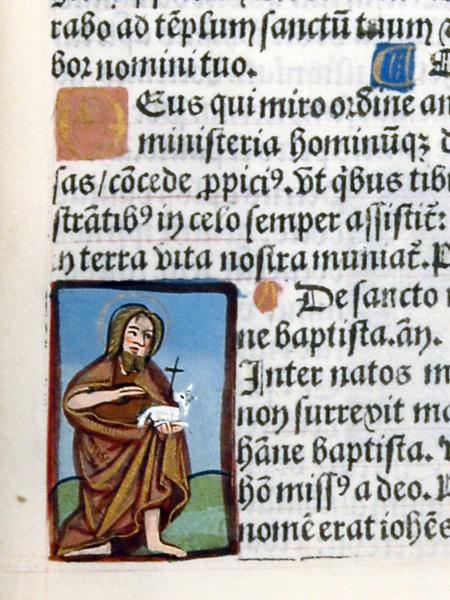 rabo ad tēplum sanctū tuum
bor nomini tuo.
Deus qui miro ordine an
ministeria hominūqꝫ d
sas/cōcede ꝓpiciꝰ. vt q̇bus tibi
strātibꝰ in celo semper assistit̄:
in terra vita nostra muniat̄. P
De sancto
ne baptista. añ.
Inter natos m
non surrexit ma
hāne baptista. V
hō missꝰ a deo. P
nomē erat iohēs